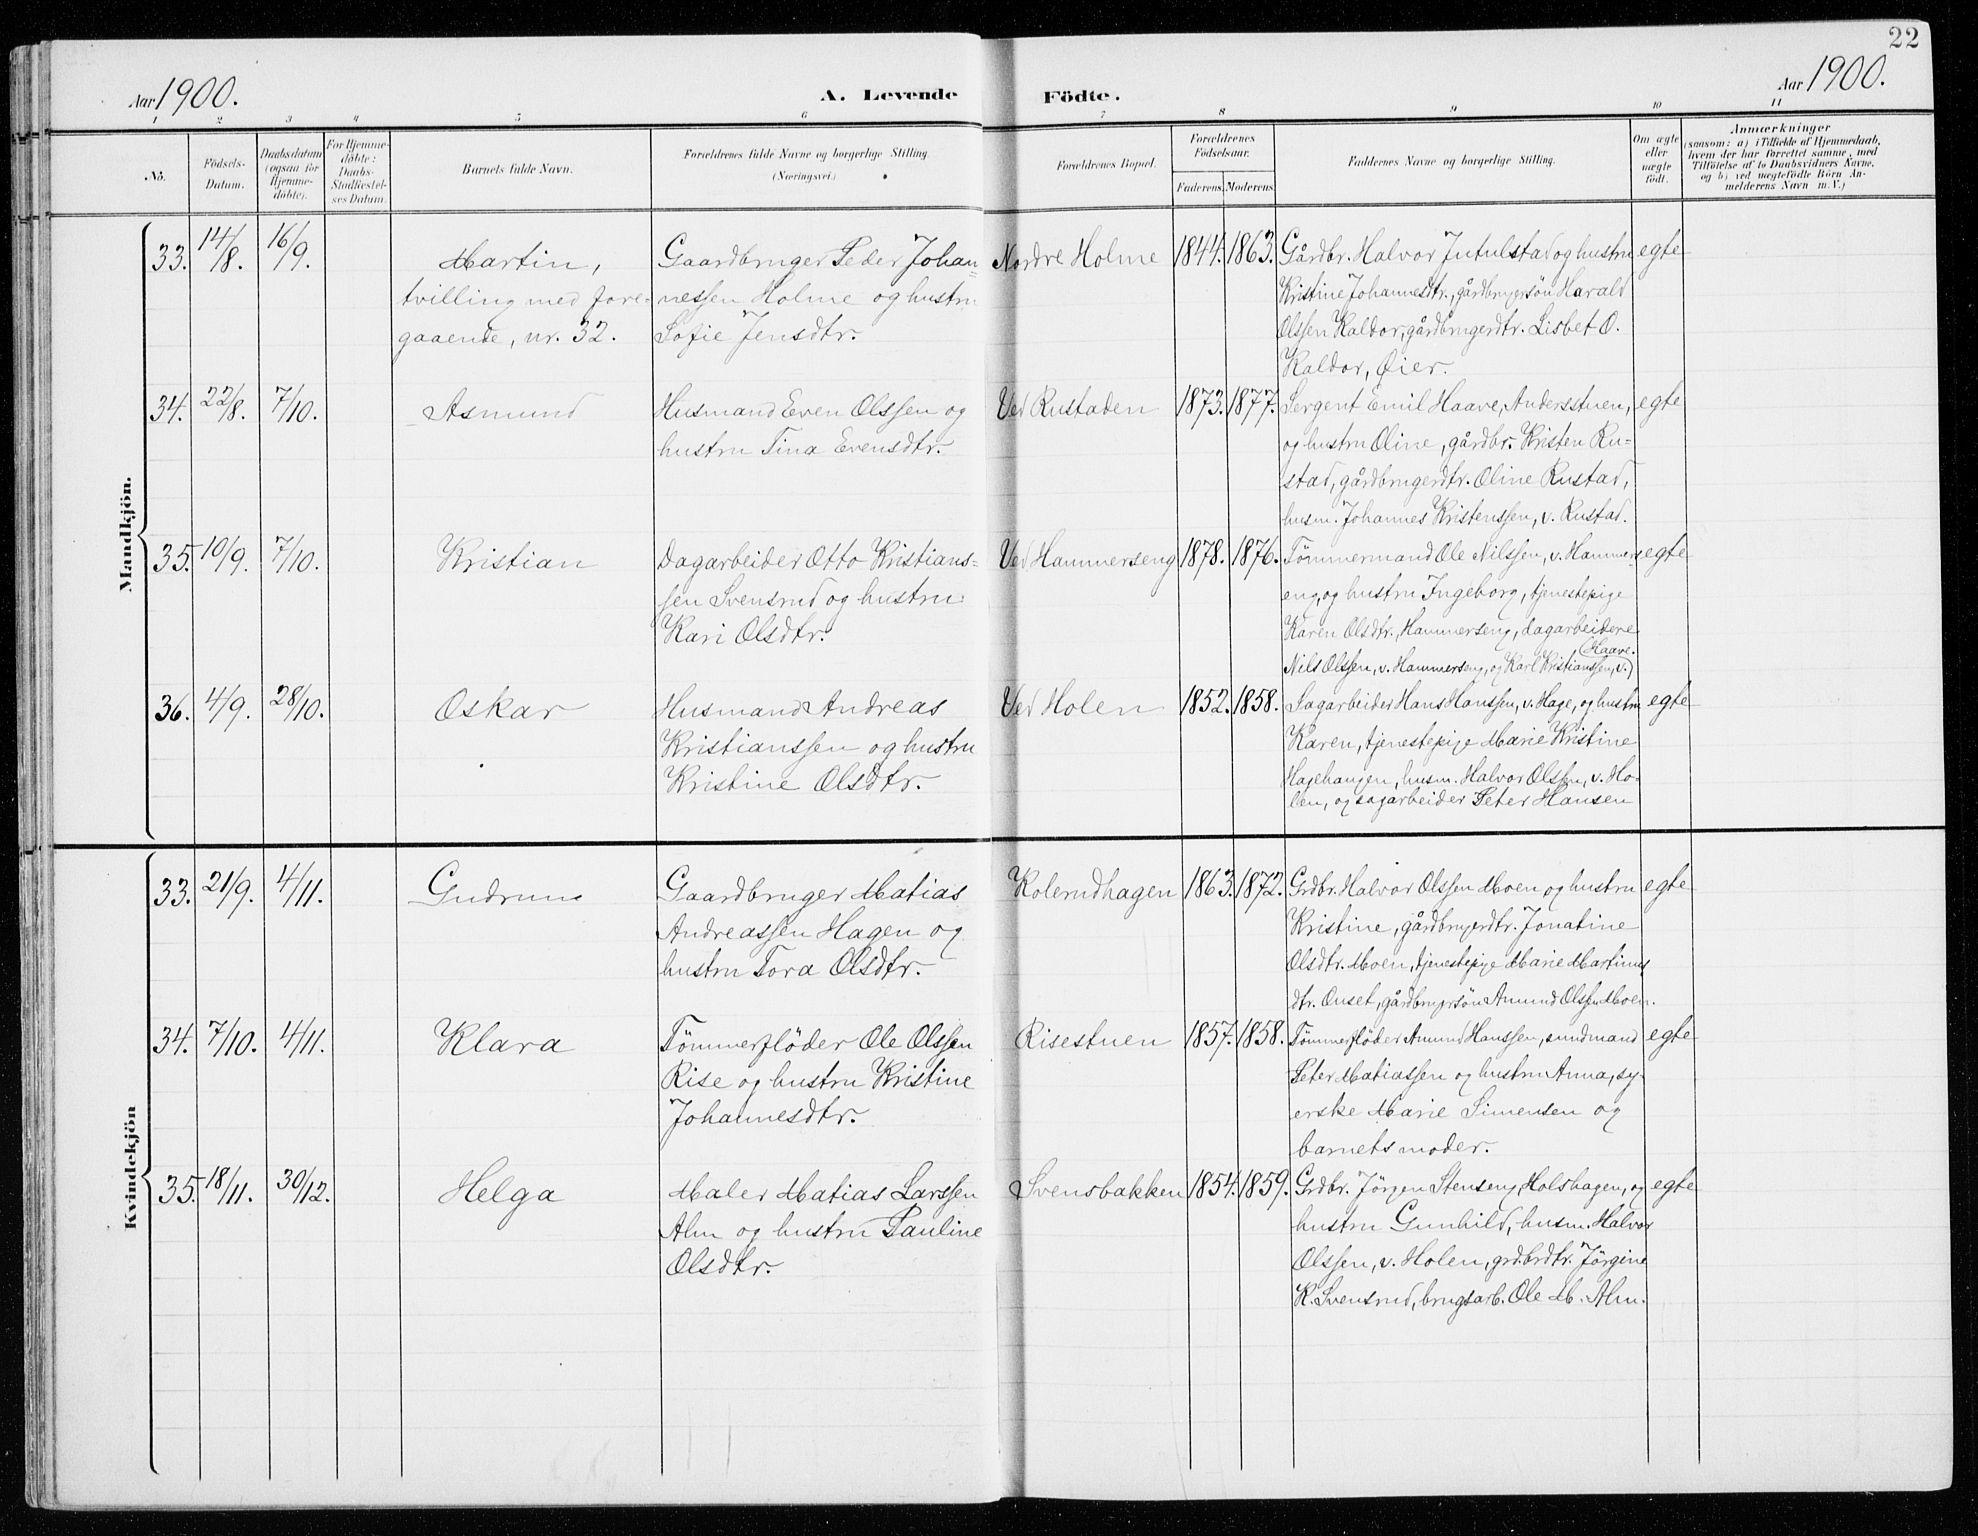 22
Aar 1900.
A. Levende
Födte.
Aar 1900.
1 2 3 4 5 6 7 8 9 10 11
No.
Födsels-
Datum.
Daabsdatum
(ogsaa for
Hjemme-
döbte).
For Hjemme-
döbte:
Daabs-
Stadfæstel-
ses Datum.
Barnets fulde Navn.
Forældrenes fulde Navne og borgerlige Stilling.
(Næringsvei.)
Forældrenes Bopæl.
Forældrenes
Födselsaar.
Faderens. Moderens.
Faddernes Navne og borgerlige Stilling.
Om ægte
eller
uægte
født.
Anmærkninger
(saasom: a) i Tilfælde af Hjemmedaab,
hvem der har forrettet samme, med
Tilföielse af to Daabsvidners Navne,
og b) ved uægtefödte Börn An-
melderens Navn m. V.)
Mandkjön.
33. 14/8. 16/9.
Martin,
tvilling med fore-
gaaende, nr. 32.
Gaardbruger Peder Johan-
nessen Holme og hustru
Sofie Jensdtr.
Nordre Holme 1844. 1863.
Gårdbr. Halvor Jutulstad og hustru
Kristine Johannesdtr., gårdbrugersön Harald
Olssen Kaldor, gårdbrugerdtr. Lisbet O.
Kaldor, Øier.
egte
34. 22/8. 7/10.
Asmund
Husmand Even Olssen og
hustru Tina Evensdtr.
Ved Rustaden 1873. 1877.
Sergent Emil Haave, Andersstuen,
og hustru Oline, gårdbr. Kristen Ru-
stad, gårdbrugerdtr. Oline Rustad,
husm. Johannes Kristenssen, v. Rustad.
egte
35. 10/9. 7/10.
Kristian
Dagarbeider Otto Kristians-
sen Svensrud og hustru
Kari Olsdtr.
Ved Hammerseng 1878. 1876.
Tømmermand Ole Nilssen, v. Hammers-
eng, og hustru Ingeborg, tjenestepige
Karen Olsdtr., Hammerseng, dagarbeidere
Nils Olssen, v. Hammerseng, og Karl Kristianssen, v.
Haave.
egte
36. 4/9. 28/10.
Oskar
Husmand Andreas
Kristianssen og hustru
Kristine Olsdtr.
Ved Holen 1852. 1858.
Sagarbeider Hans Hanssen, v. Hage, og hustru
Karen, tjenestepige Marie Kristine
Hagehaugen, husm. Halvor Olssen, v. Ho-
len, og sagarbeider Peter Hansen
egte
Kvindekjön
33. 21/9. 4/11.
Gudrun
Gaardbruger Matias
Andreassen Hagen og
hustru Tora Olsdtr.
Kolerudhagen 1863. 1872.
Grdbr. Halvor Olssen Moen og hustru
Kristine, gårdbrugerdtr. Jonatine
Olsdtr. Moen, tjenestepige Marie Martinus
dtr. Onset, gårdbrugersön Amund Olssen Moen.
egte
34. 7/10. 4/11.
Klara
Tömmerflöder Ole Olssen
Rise og hustru Kristine
Johannesdtr.
Risestuen 1857. 1858.
Tömmerflöder Amund Hanssen, sundmand
Peter Matiassen og hustru Anna, sy-
erske Marie Simensen og
barnets moder.
egte
35. 18/11. 30/12.
Helga
Maler Matias Larssen
Alm og hustru Pauline
Olsdtr.
Svensbakken 1854. 1859.
Grdbr. Jörgen Stenseng, Holshagen, og
hustru Gunhild, husm. Halvor
Olssen, v. Holen, grdbrdtr. Jörgine
K. Svensrud, brugsarb. Ole M. Alm.
egte